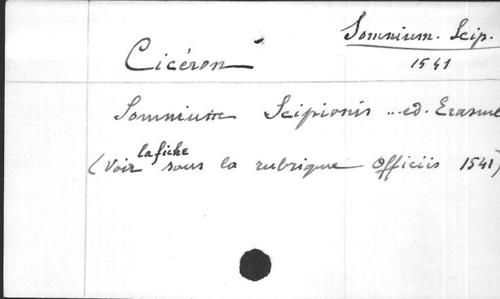 Somnium. Scip.
Cicéron
1541
Somnium Scipionis ... ed. Erasme
la fiche
(Voir sous la rubrique Officiis 1541)